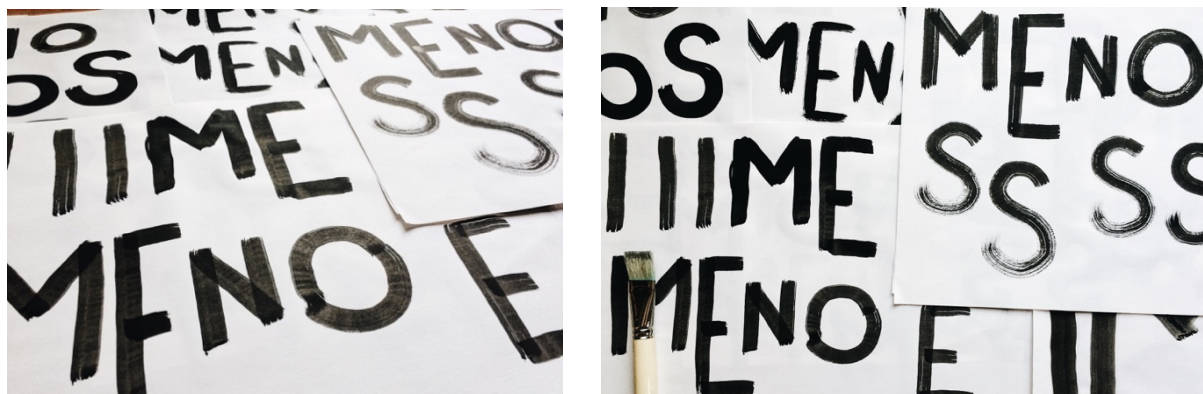 OS
MEN
MENO
SS
IIME
MENO
E
OS
MEN
MENO
SSSS
IIIME
MENO
E